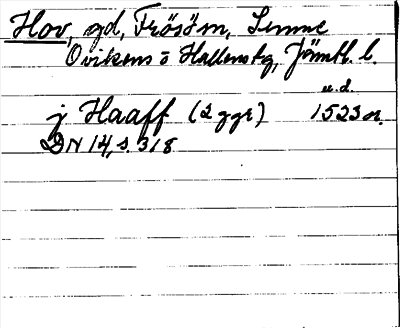 Hov, gd, Frösöm, Sunne
Ovikens o Hallens tg, Jämtl. l.
j Haaff (2 ggr) u.d. 1523 or.
DN 14, s. 318